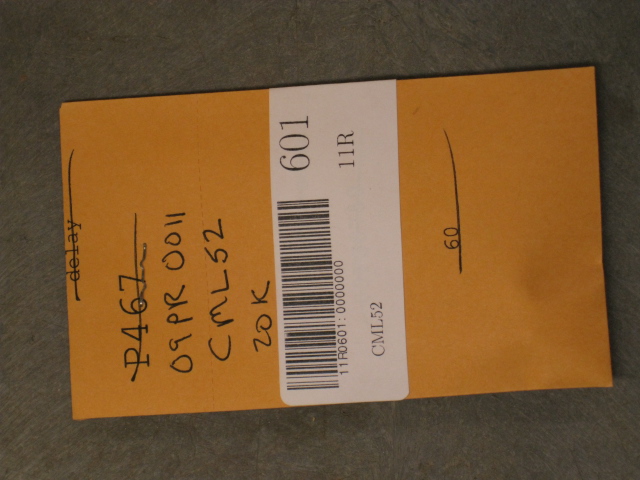 delay
P467
09PR 0011
CML52
20K
601
11R
11R0601:0000000
CML52
60